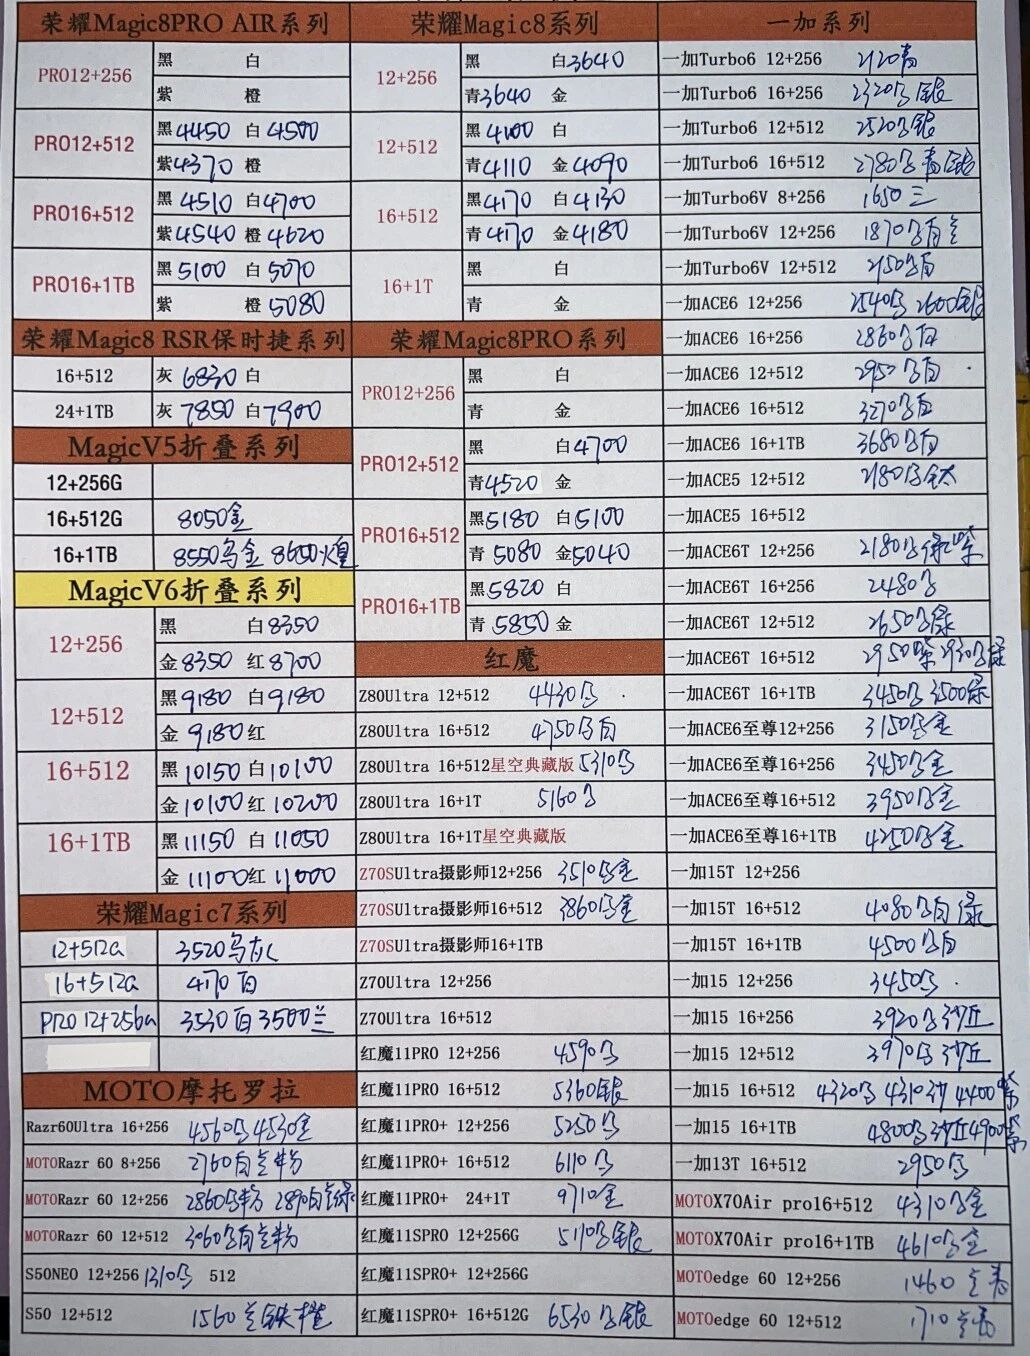 荣耀Magic8PRO AIR系列
PRO12+256 黑 白
紫 橙
PRO12+512 黑4450 白4500
紫4370 橙
PRO16+512 黑4510 白4700
紫4540 橙4620
PRO16+1TB 黑5100 白5070
紫 橙5080
荣耀Magic8 RSR保时捷系列
16+512 灰6830 白
24+1TB 灰7850 白7900
MagicV5折叠系列
12+256G
16+512G 8050金
16+1TB 8550乌金 8650火皇
MagicV6折叠系列
12+256 黑 白8350
金8350 红8700
12+512 黑9180 白9180
金9180 红
16+512 黑10150 白10100
金10100 红10200
16+1TB 黑11150 白11050
金11100 红11000
荣耀Magic7系列
12+512G 3520乌灰
16+512G 4170白
PRO 12+256G 3530白 3500兰
MOTO摩托罗拉
Razr60Ultra 16+256 4560乌 4530金
MOTORazr 60 8+256 2760白兰粉
MOTORazr 60 12+256 2860乌粉 2890白兰绿
MOTORazr 60 12+512 3060乌白兰粉
S50NEO 12+256 1310乌 512
S50 12+512 1560兰铁橙
荣耀Magic8系列
12+256 黑 白3640
青3640 金
12+512 黑4100 白
青4110 金4090
16+512 黑4170 白4130
青4170 金4180
16+1T 黑 白
青 金
荣耀Magic8PRO系列
PRO12+256 黑 白
青 金
PRO12+512 黑 白4700
青4520 金
PRO16+512 黑5180 白5100
青5080 金5040
PRO16+1TB 黑5820 白
青5850 金
红魔
Z80Ultra 12+512 4430乌
Z80Ultra 16+512 4750乌白
Z80Ultra 16+512星空典藏版 5310乌
Z80Ultra 16+1T 5160乌
Z80Ultra 16+1T星空典藏版
Z70SUltra摄影师12+256 3510乌金
Z70SUltra摄影师16+512 3860乌金
Z70SUltra摄影师16+1TB
Z70Ultra 12+256
Z70Ultra 16+512
红魔11PRO 12+256 4590乌
红魔11PRO 16+512 5360银
红魔11PRO+ 12+256 5250乌
红魔11PRO+ 16+512 6110乌
红魔11PRO+ 24+1T 9710金
红魔11SPRO 12+256G 5110乌银
红魔11SPRO+ 12+256G
红魔11SPRO+ 16+512G 6530乌银
一加系列
一加Turbo6 12+256 2120青
一加Turbo6 16+256 2320乌银
一加Turbo6 12+512 2520乌银
一加Turbo6 16+512 2780乌青银
一加Turbo6V 8+256 1650兰
一加Turbo6V 12+256 1870乌白兰
一加Turbo6V 12+512 2150乌白
一加ACE6 12+256 2540乌 2600银
一加ACE6 16+256 2860乌白
一加ACE6 12+512 2950乌白
一加ACE6 16+512 3270乌白
一加ACE6 16+1TB 3680乌白
一加ACE5 12+512 2180乌钛
一加ACE5 16+512
一加ACE6T 12+256 2180乌绿紫
一加ACE6T 16+256 2480乌
一加ACE6T 12+512 2650乌绿
一加ACE6T 16+512 2950紫 2930乌绿
一加ACE6T 16+1TB 3450乌 3500绿
一加ACE6至尊12+256 3150乌金
一加ACE6至尊16+256 3450乌金
一加ACE6至尊16+512 3950乌金
一加ACE6至尊16+1TB 4250乌金
一加15T 12+256
一加15T 16+512 4080乌白绿
一加15T 16+1TB 4500乌白
一加15 12+256 3450乌
一加15 16+256 3920乌沙丘
一加15 12+512 3970乌沙丘
一加15 16+512 4320乌 4310沙 4400紫
一加15 16+1TB 4800乌沙丘 4900紫
一加13T 16+512 2950乌
MOTOX70Air pro16+512 4310乌金
MOTOX70Air pro16+1TB 4610乌金
MOTOedge 60 12+256 1460兰青
MOTOedge 60 12+512 1710兰青